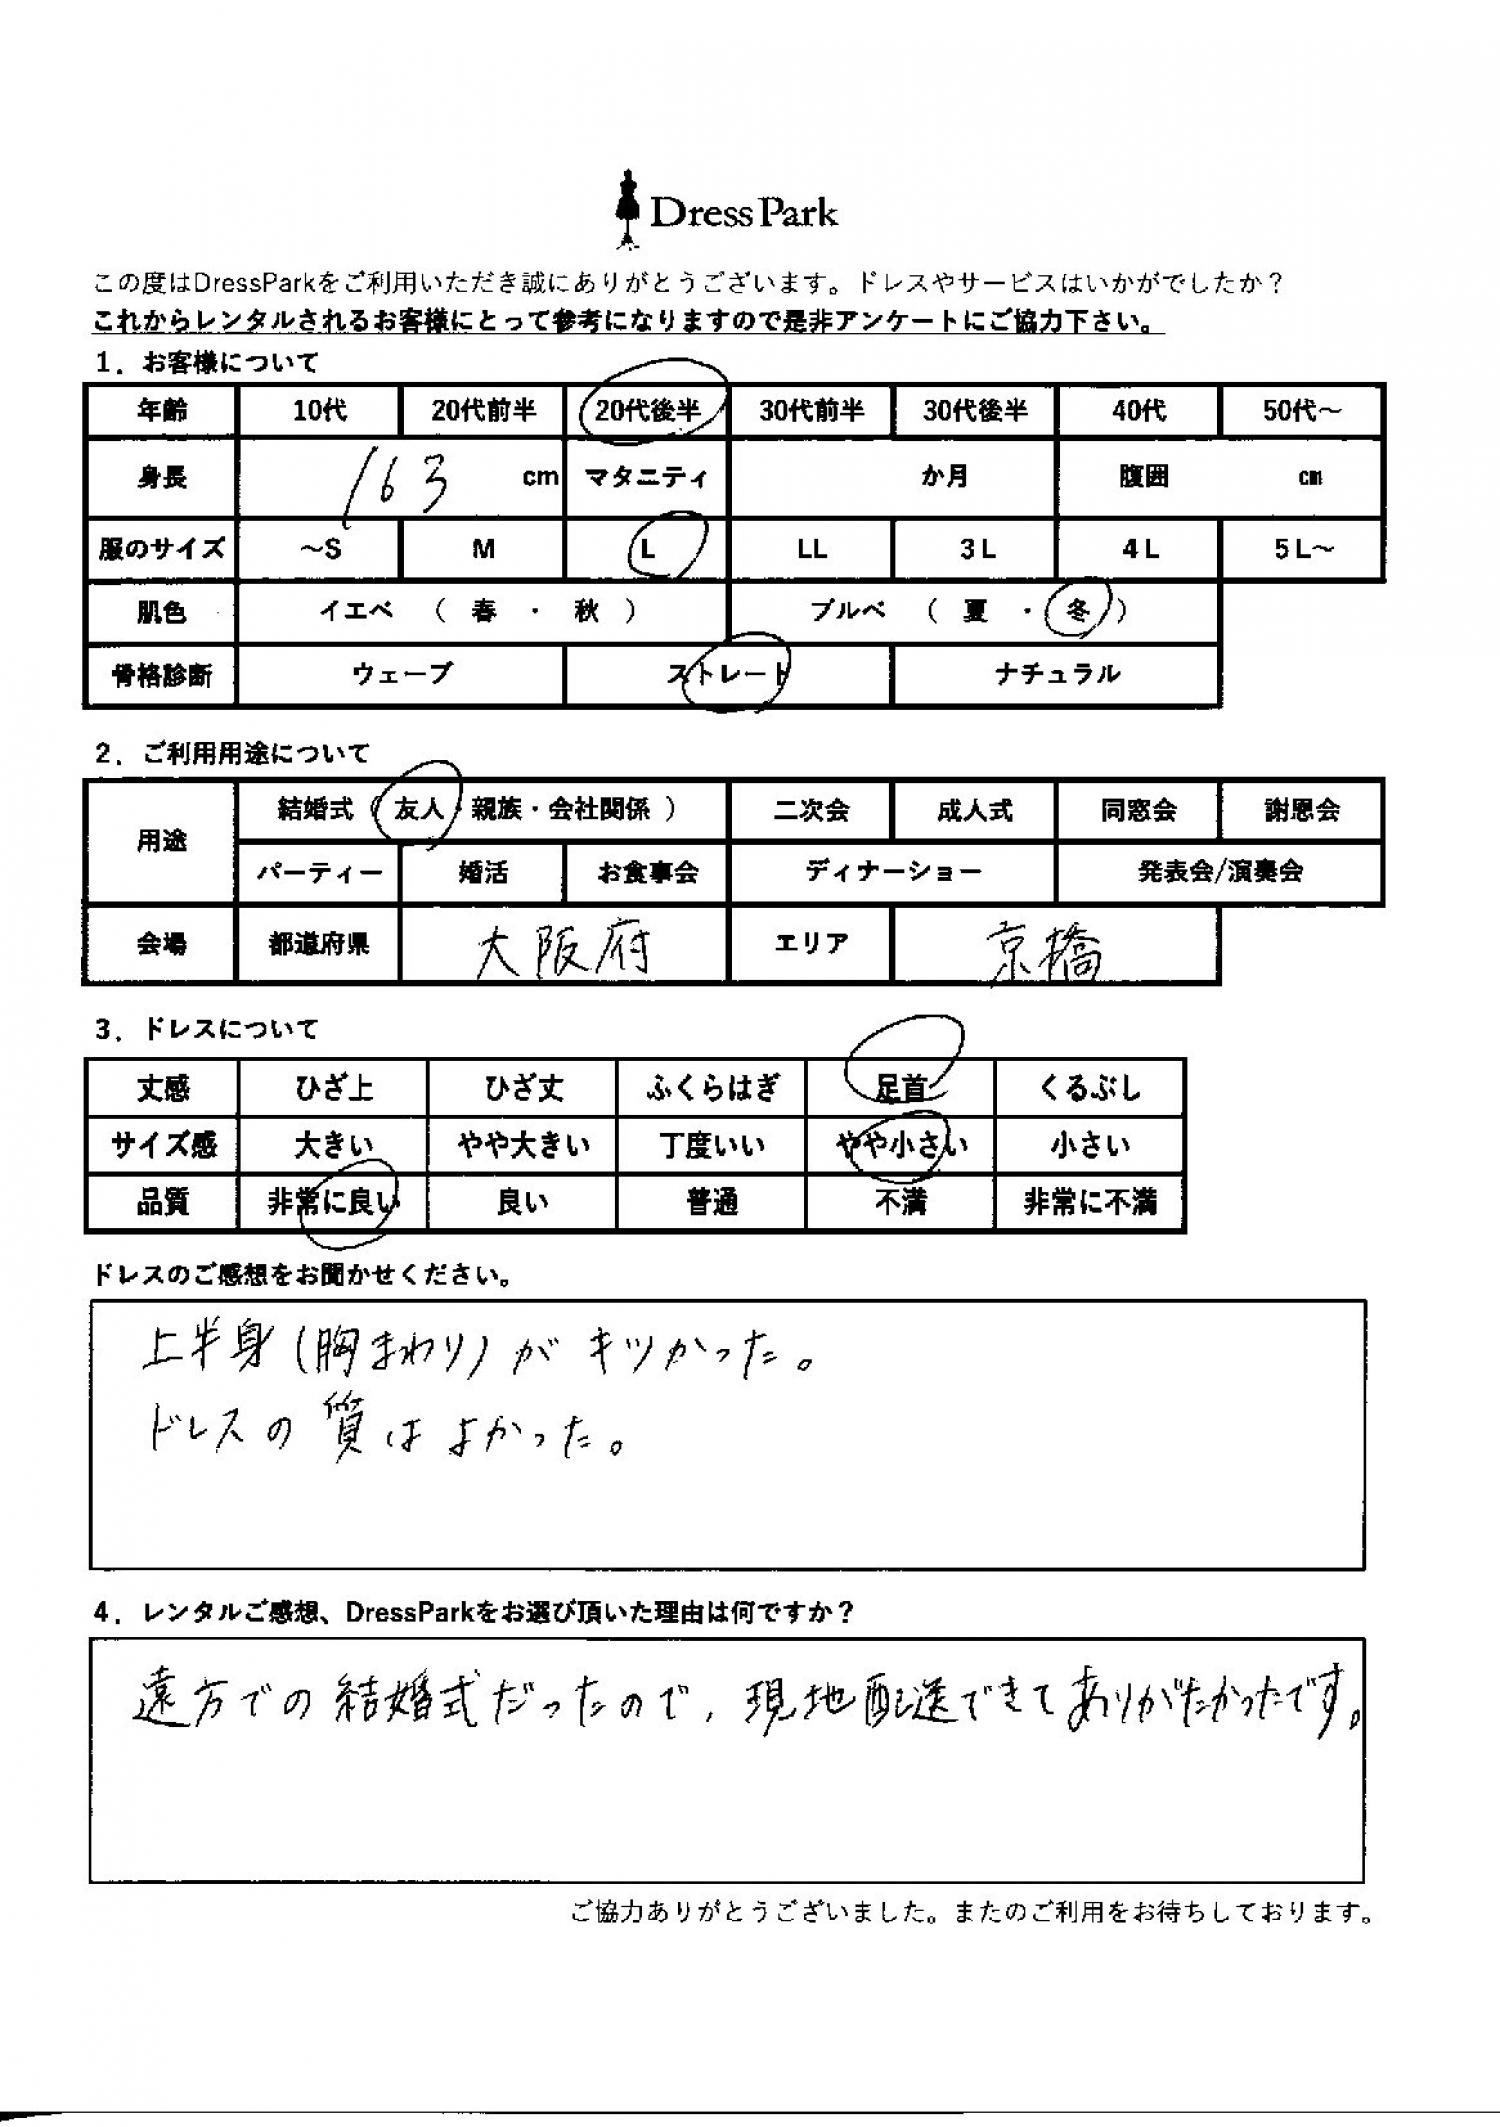 DressPark
この度はDressParkをご利用いただき誠にありがとうございます。ドレスやサービスはいかがでしたか？
これからレンタルされるお客様にとって参考になりますので是非アンケートにご協力下さい。
1．お客様について
年齢 10代 20代前半 20代後半 30代前半 30代後半 40代 50代～
身長 163 cm マタニティ か月 腹囲 cm
服のサイズ ～S M L LL 3L 4L 5L～
肌色 イエベ （ 春 ・ 秋 ） ブルベ （ 夏 ・ 冬 ）
骨格診断 ウェーブ ストレート ナチュラル
2．ご利用用途について
用途 結婚式（ 友人・親族・会社関係 ） 二次会 成人式 同窓会 謝恩会
パーティー 婚活 お食事会 ディナーショー 発表会/演奏会
会場 都道府県 大阪府 エリア 京橋
3．ドレスについて
丈感 ひざ上 ひざ丈 ふくらはぎ 足首 くるぶし
サイズ感 大きい やや大きい 丁度いい やや小さい 小さい
品質 非常に良い 良い 普通 不満 非常に不満
ドレスのご感想をお聞かせください。
上半身（胸まわり）がキツかった。
ドレスの質はよかった。
4．レンタルご感想、DressParkをお選び頂いた理由は何ですか？
遠方での結婚式だったので、現地配送できてありがたかったです。
ご協力ありがとうございました。またのご利用をお待ちしております。